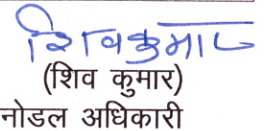 शिवकुमार
(शिव कुमार)
नोडल अधिकारी